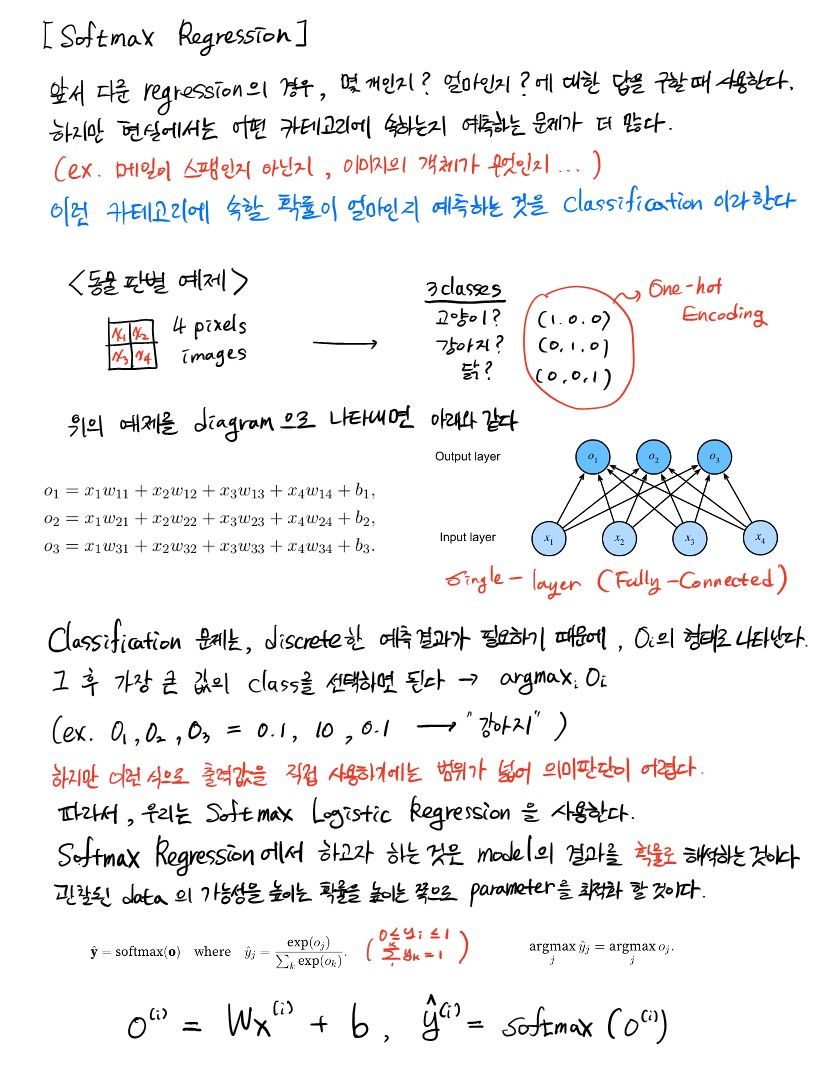 [Softmax Regression]
앞서 다룬 regression의 경우, 몇 개인지? 얼마인지?에 대한 답을 구할 때 사용한다.
하지만 현실에서는 어떤 카테고리에 속하는지 예측하는 문제가 더 많다.
(ex. 메일이 스팸인지 아닌지, 이미지의 객체가 무엇인지...)
이런 카테고리에 속할 확률이 얼마인지 예측하는 것을 Classification 이라한다
<동물 판별 예제>
x₁ x₂
x₃ x₄
4 pixels
images
3 classes
고양이? (1.0.0)
강아지? (0.1.0)
닭? (0.0.1)
One-hot
Encoding
위의 예제를 diagram으로 나타내면 아래와 같다
o₁ = x₁w₁₁ + x₂w₁₂ + x₃w₁₃ + x₄w₁₄ + b₁,
o₂ = x₁w₂₁ + x₂w₂₂ + x₃w₂₃ + x₄w₂₄ + b₂,
o₃ = x₁w₃₁ + x₂w₃₂ + x₃w₃₃ + x₄w₃₄ + b₃.
Output layer o₁ o₂ o₃
Input layer x₁ x₂ x₃ x₄
Single-layer (Fully-Connected)
Classification 문제는, discrete한 예측결과가 필요하기 때문에, Oᵢ의 형태로 나타난다.
그 후 가장 큰 값의 class를 선택하면 된다 → argmaxᵢ Oᵢ
(ex. O₁, O₂, O₃ = 0.1, 10, 0.1 → "강아지")
하지만 이런 식으로 출력값을 직접 사용하기에는 범위가 넓어 의미판단이 어렵다.
따라서, 우리는 Softmax Logistic Regression을 사용한다.
Softmax Regression에서 하고자 하는 것은 model의 결과를 확률로 해석하는 것이다
관찰된 data의 가능성을 높이는 확률을 높이는 쪽으로 parameter을 최적화 할 것이다.
ŷ = softmax(o) where ŷⱼ = exp(oⱼ) / ∑ₖ exp(oₖ). (0≤yᵢ≤1
∑yₖ=1)
argmax ŷⱼ = argmax oⱼ.
j j
O⁽ⁱ⁾ = Wx⁽ⁱ⁾ + b, ŷ⁽ⁱ⁾ = softmax(O⁽ⁱ⁾)